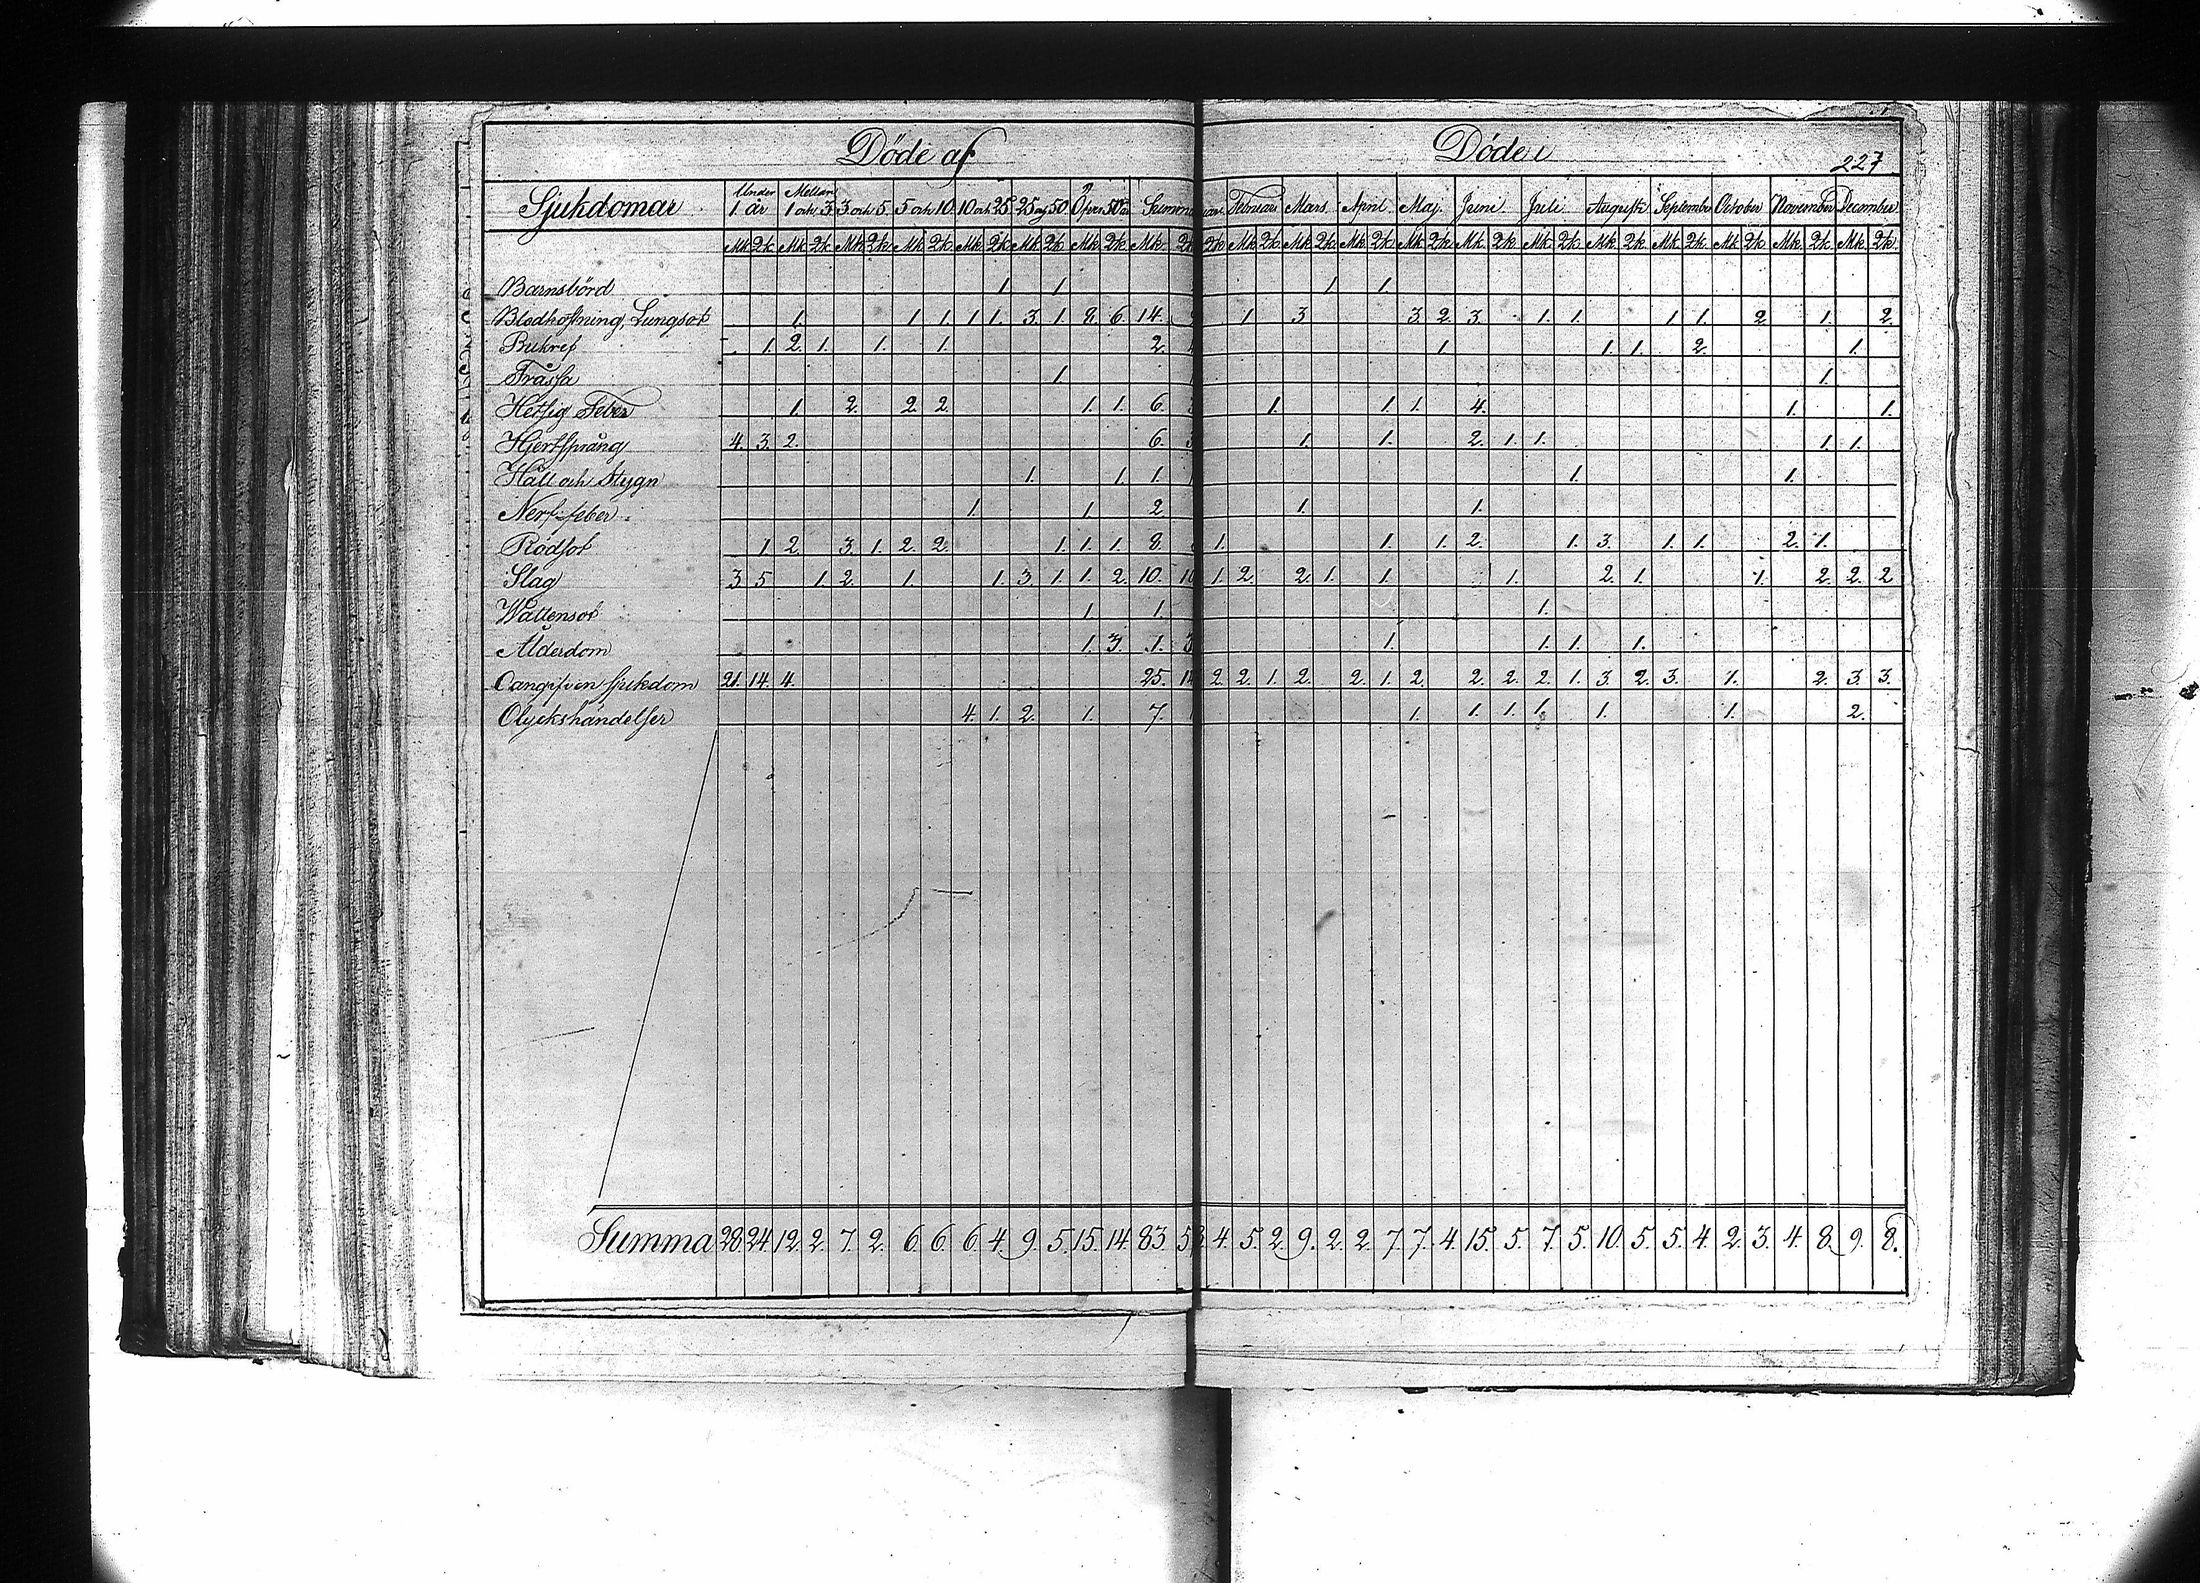 Döde af Döde i
227
Sjukdomar Under 1. år Mellan 1 och 3 3 och 5. 5 och 10. 10 och 25 25 och 50 Öfver 50 år Summa Februari Mars April Maj Juni Juli Augusti September October November December
Mk. Qk. Mk. Qk. Mk. Qk. Mk. Qk. Mk. Qk. Mk. Qk. Mk. Qk. Mk. Qk. Qk. Mk. Qk. Mk. Qk. Mk. Qk. Mk. Qk. Mk. Qk. Mk. Qk. Mk. Qk. Mk. Qk. Mk. Qk. Mk. Qk. Mk. Qk.
Barnsbörd 1. 1. 1. 1.
Blodhostning, Lungsot 1. 1. 1. 1. 1. 3. 1. 8. 6. 14. 1. 3. 3. 2. 3. 1. 1. 1. 1. 2. 1. 2.
Bukref 1. 2. 1. 1. 1. 2. 1. 1. 1. 2. 1.
Fråssa 1. 1.
Hetsig Feber 1. 2. 2. 2. 1. 1. 6. 3 1. 1. 1. 4. 1. 1.
Hjertsprång 4. 3. 2. 6. 3 1. 1. 2. 1. 1. 1. 1.
Håll och Stygn 1. 1. 1. 1. 1.
Nerf-feber 1. 1. 2. 1. 1.
Rödsot 1. 2. 3. 1. 2. 2. 1. 1. 1. 8. 1. 1. 1. 2. 1. 3. 1. 1. 2. 1.
Slag 3. 5. 1. 2. 1. 1. 3. 1. 1. 2. 10. 10 1. 2. 2. 1. 1. 1. 2. 1. 1. 2. 2. 2.
Wattensot 1. 1. 1.
Ålderdom 1. 3. 1. 3 1. 1. 1. 1.
Oangifven sjukdom 21. 14. 4. 25. 14 2. 2. 1. 2. 2. 1. 2. 2. 2. 2. 1. 3. 2. 3. 1. 2. 3. 3.
Olyckshändelser 4. 1. 2. 1. 7. 1 1. 1. 1. 1. 1. 1. 2.
Summa 28. 24. 12. 2. 7. 2. 6. 6. 6. 4. 9. 5. 15. 14. 83. 4. 5. 2. 9. 2. 2. 7. 7. 4. 15. 5. 7. 5. 10. 5. 5. 4. 2. 3. 4. 8. 9. 8.